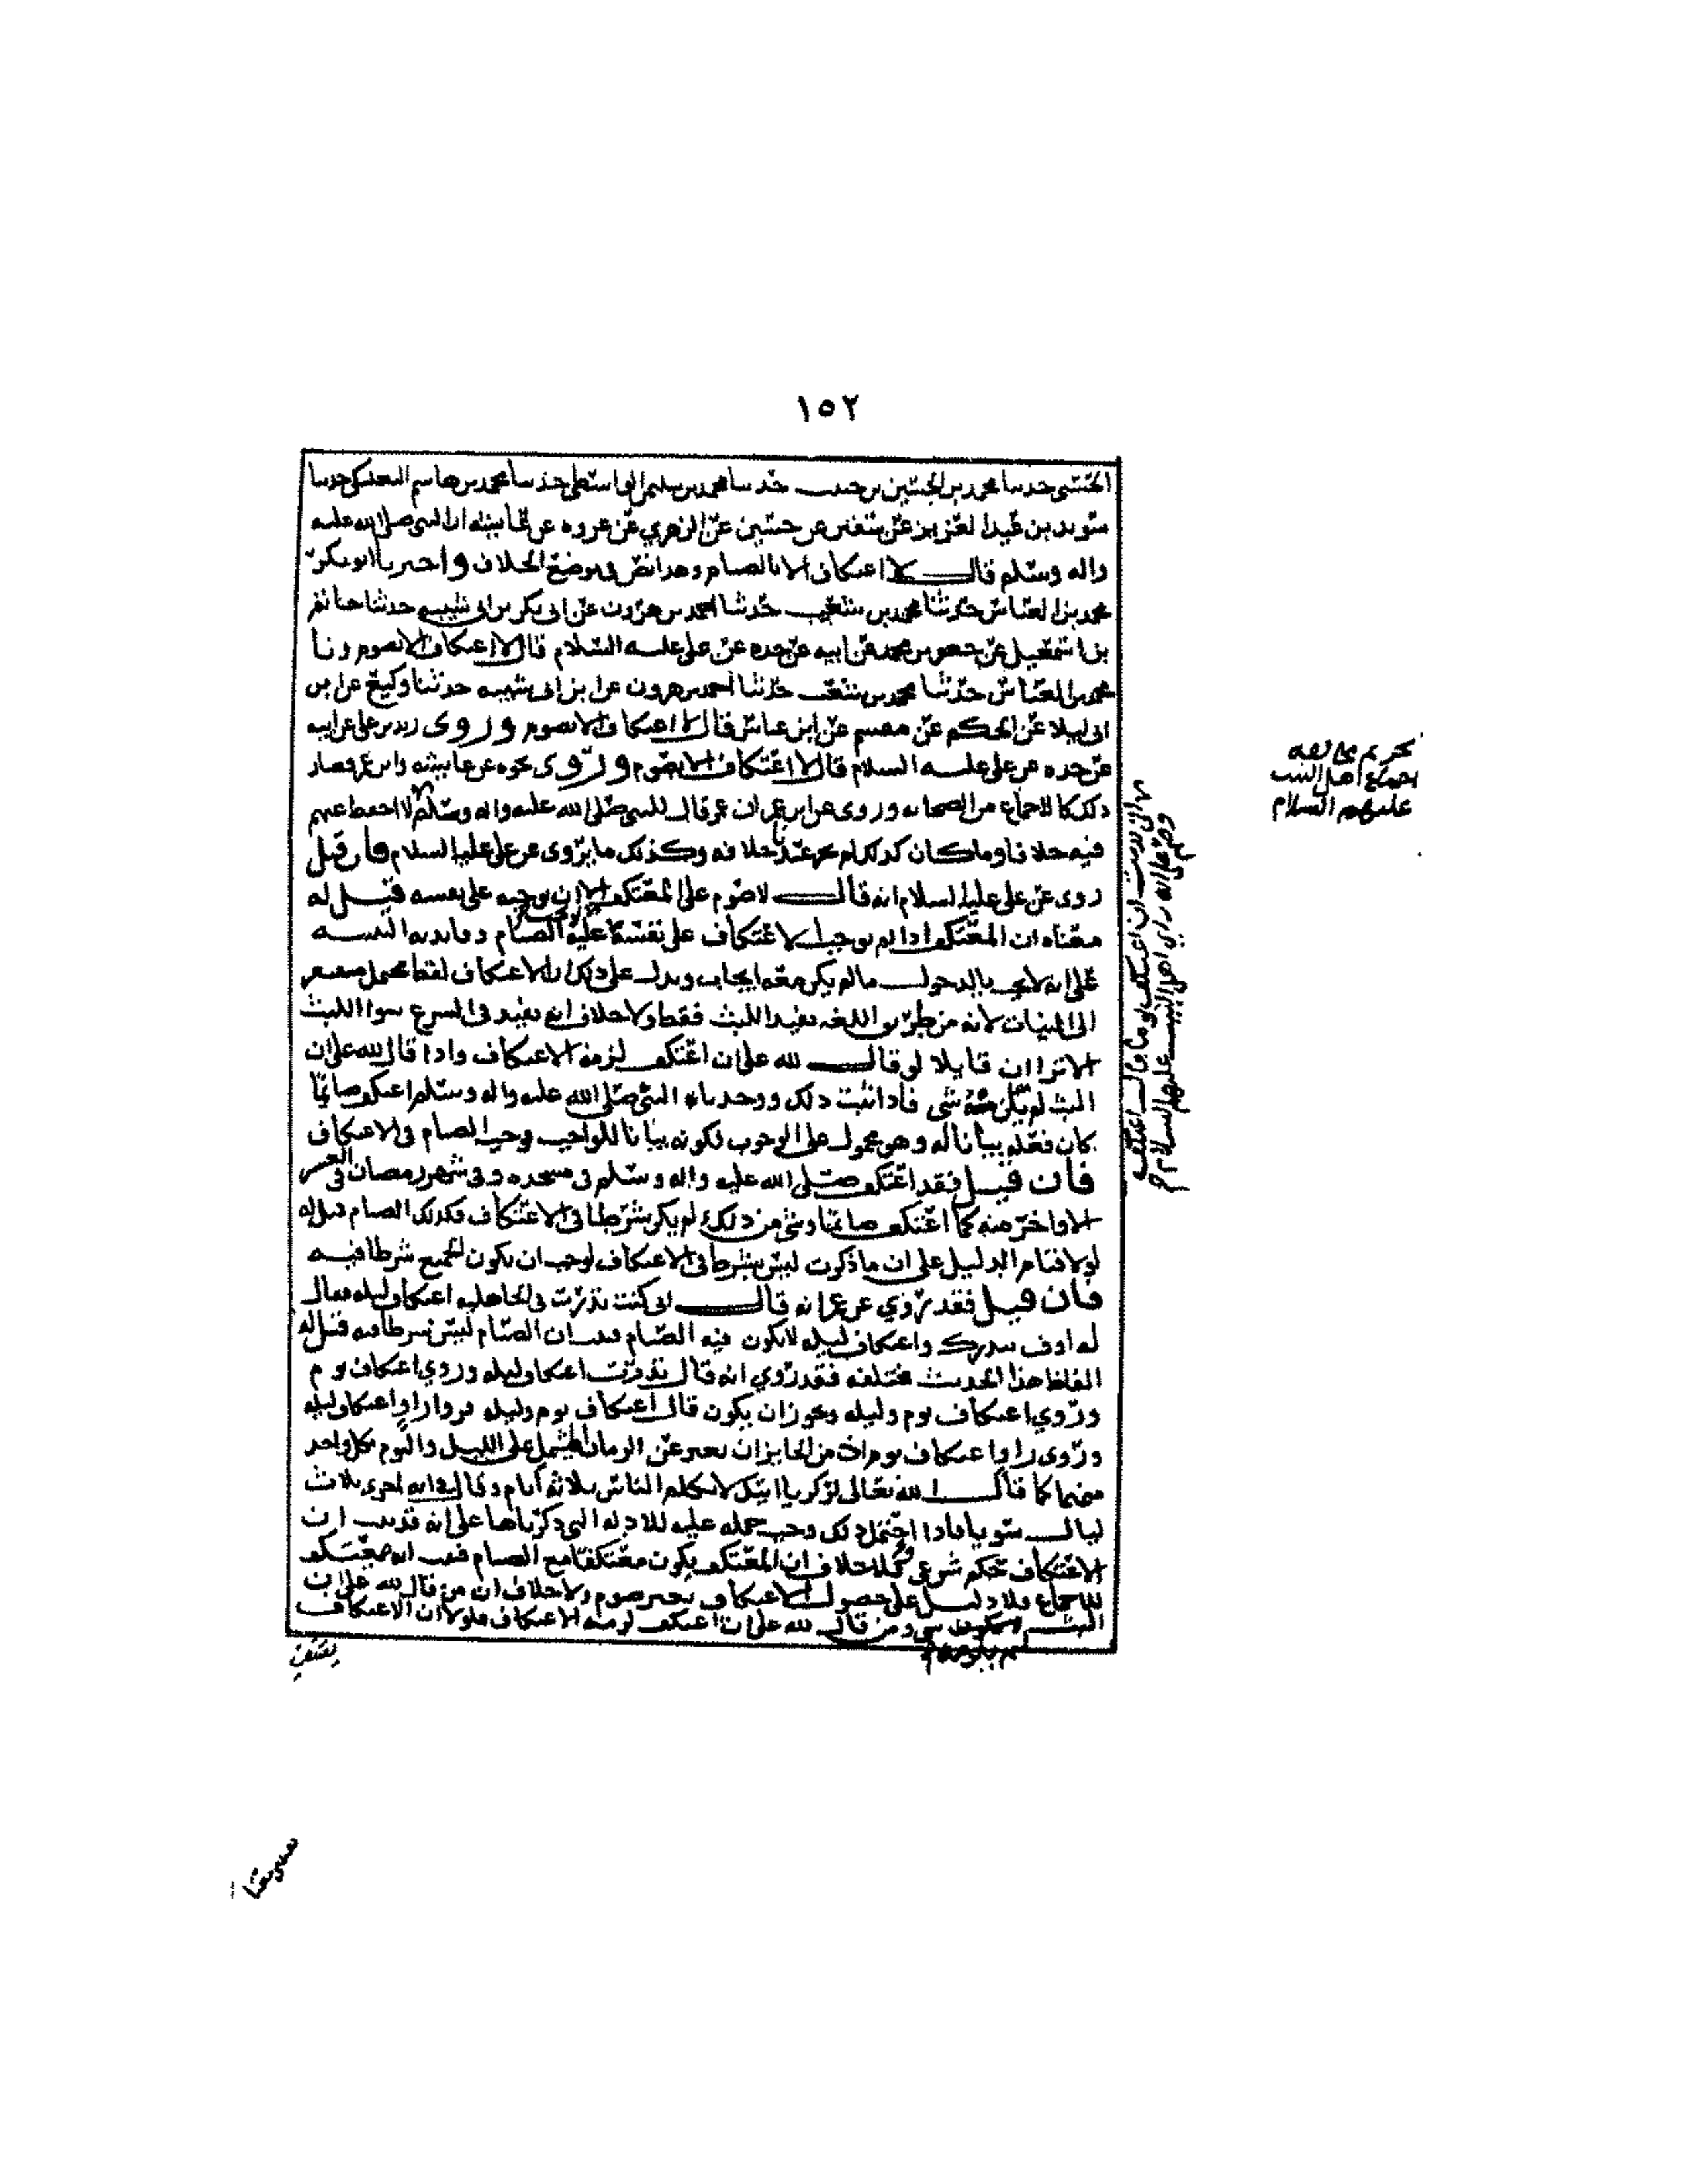 ١٥٢
محمد بن الحسين بن حدثنا محمد بن سليمن الواسطي حدثنا محمد بن هاشم البعلبكي حدثنا
سويد بن عبدا لعزيز عن سفين عن حسين عن الزهري عن عروه عن عايشه ان النبي صلى الله عليه
واله وسلم قال لا اعتكاف الا بالصيام وهذا نص في موضع الخلاف واخبرنا ابو بكر
محمد بن العباس حدثنا محمد بن شعيب حدثنا احمد بن هرون عن ابي بكر بن ابي شيبه حدثنا حاتم
بن اسمعيل عن جعفر بن محمد عن ابيه عن جده عن علي عليه السلام قال لا اعتكاف الا بصوم ونا
محمد بن العباس حدثنا محمد بن شعيب حدثنا احمد بن هرون عن ابن ابي شيبه حدثنا وكيع عن ابن
ابي ليلا عن الحكم عن مقسم عن ابن عباس قال لا اعتكاف الا بصوم وروى زيد بن علي عن ابيه
عن جده عن علي عليه السلام قال لا اعتكاف الا بصوم وروى نحوه عن عايشه وابن عمر فصار
ذلك كالاجماع من الصحابه وروى عن ابن عمر ان عمر قال للنبي صلى الله عليه واله وسلم لا احفظ عنهم
فيه خلافا وما كان كذلك لم يجز عندنا خلافه وكذلك ما يروى عن علي عليه السلام فان قيل
روى عن علي عليه السلام انه قال لا صوم على المعتكف الا ان يوجبه على نفسه قيل له
معناه ان المعتكف اذا لم يوجب الاعتكاف على نفسه عليه الصيام وفايدته التنبيه
على انه لا يجب بالدخول ما لم يكن معه ايجاب ويدل على ذلك ان الاعتكاف لفظ مجمل مفتقر
الى البيان لانه من طريق اللغه يفيد اللبث فقط ولا خلاف انه يفيد في الشرع سوا اللبث
الا ترا ان قايلا لو قال لله علي ان اعتكف لزمه الاعتكاف واذا قال لله علي ان
البث لم يكن شي فاذا ثبت ذلك ووجدنا النبي صلى الله عليه واله وسلم اعتكف صايما
كان فعله بيانا له وهو محمول على الوجوب لكونه بيانا للواجب وجب الصيام في الاعتكاف
فان قيل فقد اعتكف صلى الله عليه واله وسلم في مسجده وفي شهر رمضان في العشر
الاواخر منه كما اعتكف صايما وشي من ذلك لم يكن شرطا في الاعتكاف فكذلك الصيام قيل له
لولا قيام الدليل على ان ما ذكرت ليس بشرط في الاعتكاف لوجب ان يكون الجميع شرطا فيه
فان قيل فقد روي عن عمر انه قال اني كنت نذرت في الجاهليه اعتكاف ليله فقال
له اوف بنذرك واعتكاف ليله لا يكون فيه الصيام فبان ان الصيام ليس شرطا فيه قيل له
الفاظ هذا الحديث مختلفه فقد روي انه قال نذرت اعتكاف ليله وروي اعتكاف يوم
وروي اعتكاف يوم وليله ويجوز ان يكون قال اعتكاف يوم وليله فروا راو اعتكاف ليله
وروى راو اعتكاف يوم اذ من الجايز ان يعبر عن الزمان المشتمل على الليل واليوم بكل واحد
منهما كما قال الله تعالى لزكريا ايتك لا تكلم الناس ثلاثه ايام وقال في ايه اخرى ثلاث
ليال سويا فاذا احتمل ذلك وجب حمله عليه للادله التي ذكرناها على انه قد ثبت ان
الاعتكاف حكم شرعي ولا خلاف ان المعتكف يكون معتكفا مع الصيام فثبت انه معتكف
للاجماع ولا دليل على حصول الاعتكاف بغير صوم ولا خلاف ان من قال لله علي ان
البث شي ومن قال لله علي ان اعتكف لزمه الاعتكاف فلولا ان الاعتكاف
يقتضي
تحريم مخالفه
اجماع اهل البيت
عليهم السلام